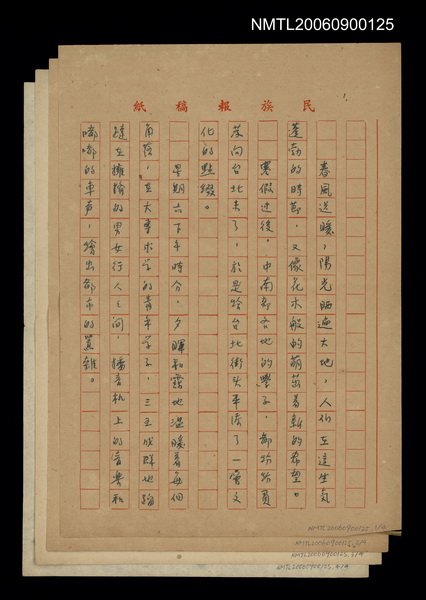 NMTL20060900125
民族報稿紙
春風送暖，陽光晒遍大地，人們在這生氣
蓬勃的時節，又像花木般的萌茁着新的希望。
寒假過後，中南部各地的學子，都紛紛負
笈向台北來了，於是給台北街頭平添了一番文
化的點綴。
星期六下午時分，夕暉和靄地溫暖着每個
角落，在大專求學的青年學子，三五成群地踏
躂在擁擠的男女行人之間，播音机上的音樂和
嘟嘟的車声，繪出都市的囂雜。
NMTL20060900125, 1/4
NMTL20060900125, 2/4
NMTL20060900125, 3/4
NMTL20060900125, 4/4